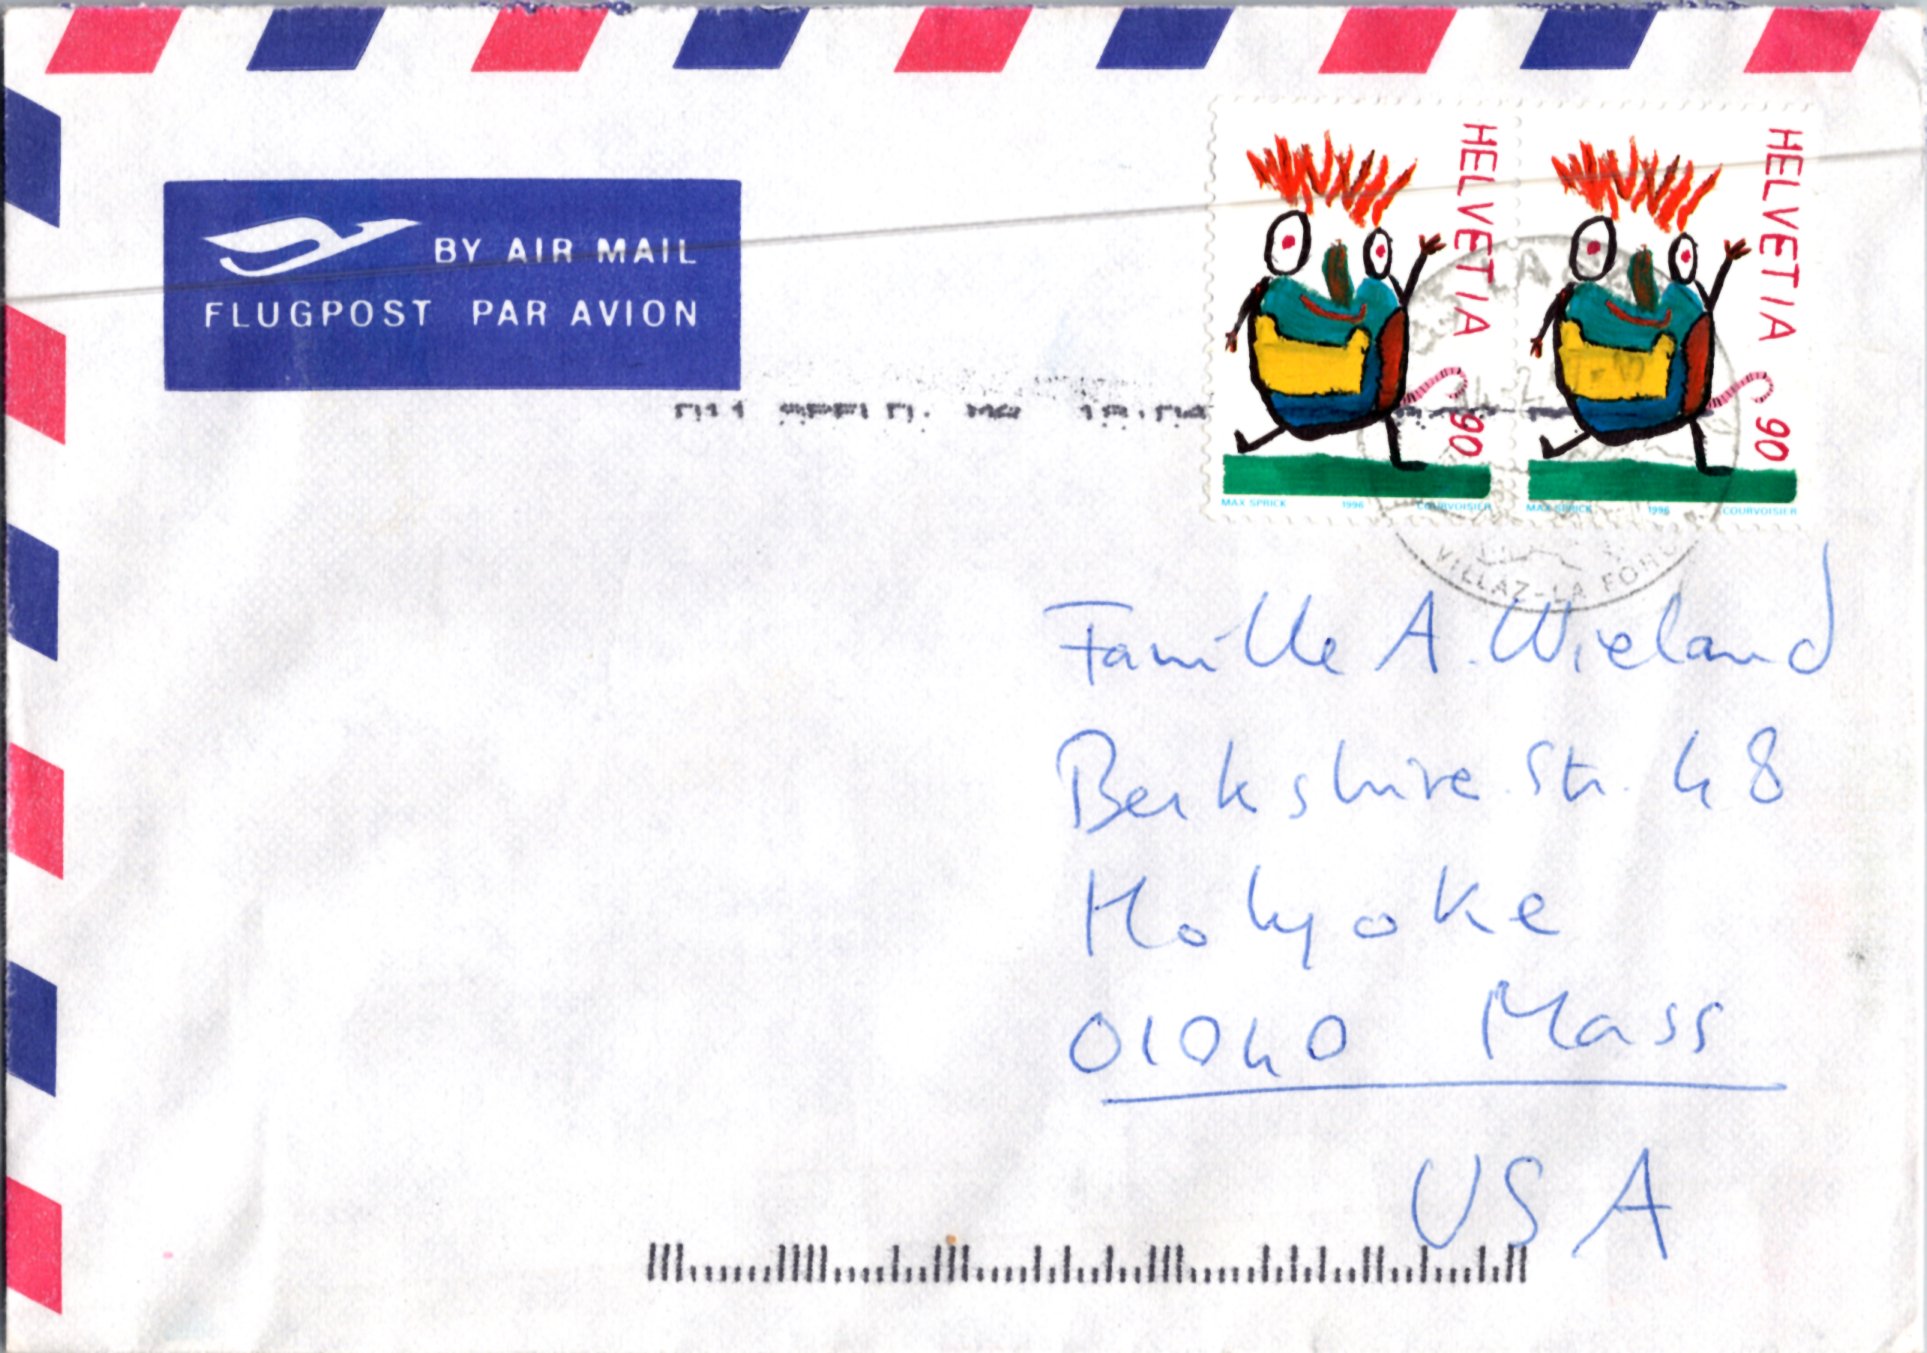 BY AIR MAIL
FLUGPOST PAR AVION
HELVETIA 90
MAX SPRICK 1996 COURVOISIER
HELVETIA 90
MAX SPRICK 1996 COURVOISIER
VILLAZ-LA
Famille A. Wieland
Berkshire Str. 48
Holyoke
01040 Mass
USA